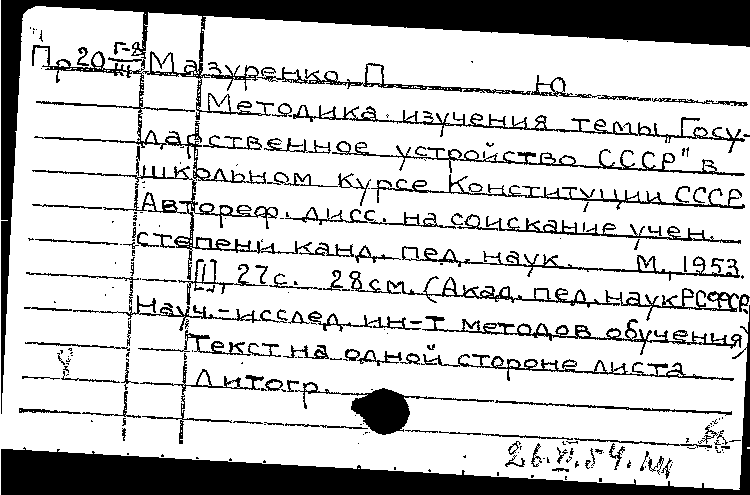 Пр20 Г-8 Мазуренко, П Ю
III
Методика изучения темы „Госу-
дарственное устройство СССР" в
школьном курсе Конституции СССР
Автореф. дисс. на соискание учен.
степени канд. пед. наук. М., 1953.
[I], 27с. 28см. (Акад. пед. наук РСФСР
Науч.-исслед. ин-т методов обучения)
Текст на одной стороне листа.
Литогр.
26.VI.54.